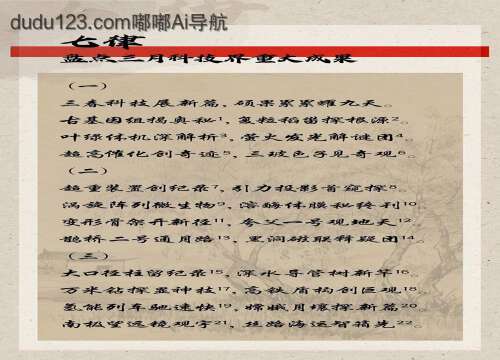 dudu123.com嘟嘟Ai导航
七律
盘点三月科技界重大成果
（一）
三春科技展新篇，硕果累累耀九天。
古基因组揭奥秘1，炭粒稻苗探根源2。
叶绿体机深解析3，萤火发光解谜团4。
超高催化创奇迹5，三玻色子见奇观6。
（二）
超重装置创纪录7，引力投影首窥探8。
涡旋阵列微生物9，溶酶体膜秘终判10
变形骨架开新径11，夸父一号观地天12。
鹊桥二号通月路13，里洞磁联释疑团14。
（三）
大口径柱留纪录15，深水导管树新竿16。
万米钻探显神技17，高铁盾构创巨观18。
氢能列车驰速快19，嫦娥月壤探新篇20。
南极望远镜观宇21，丝路海运智首先22。